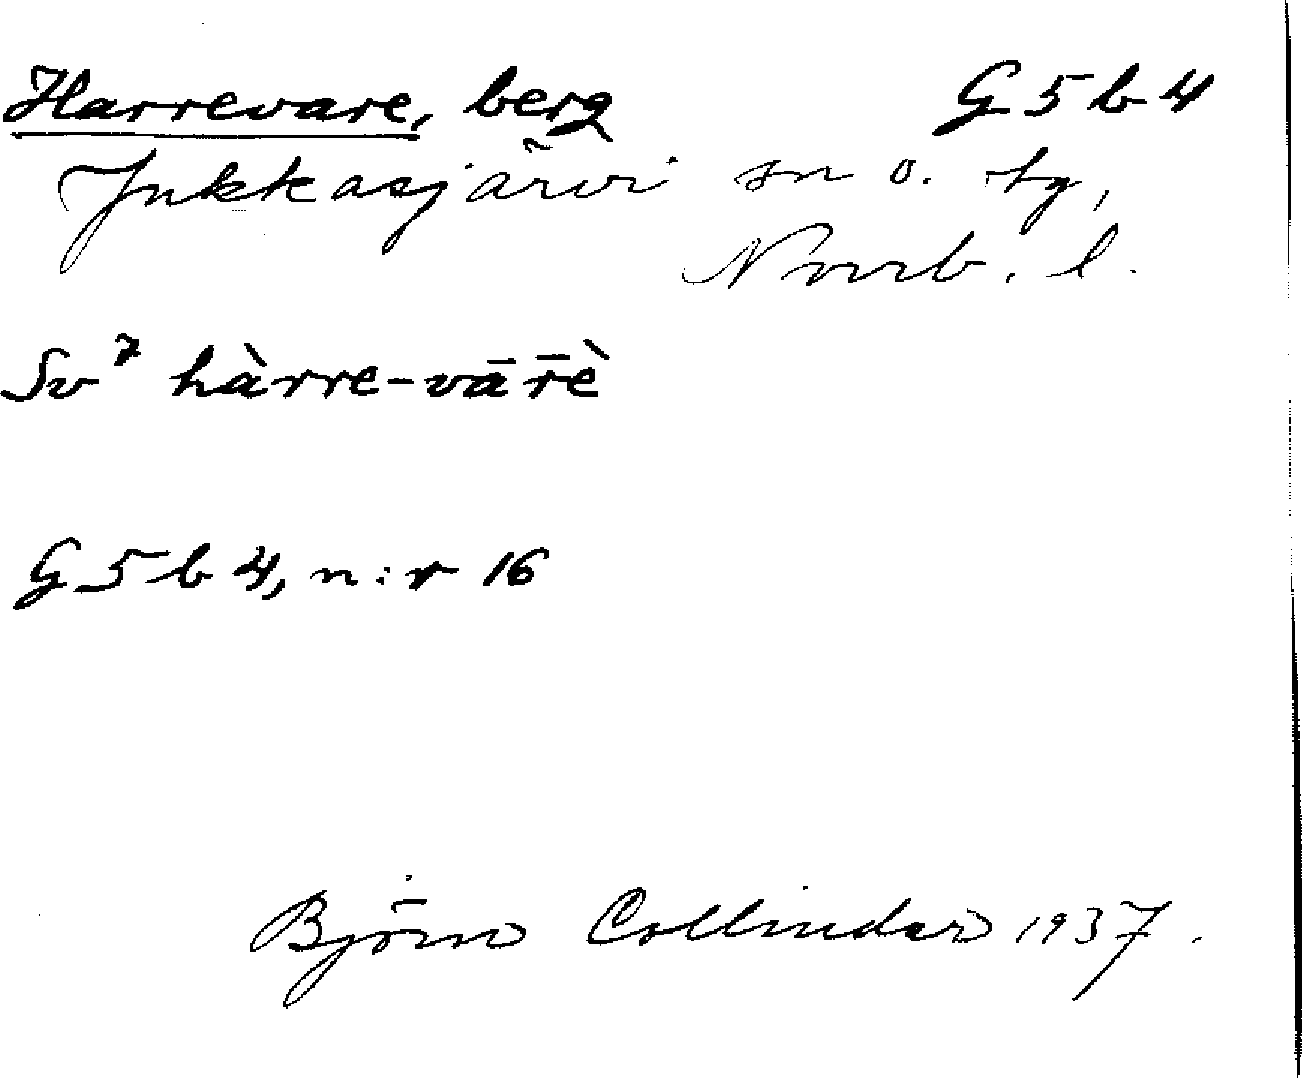 Harrevare, berg G 5 b 4
Jukkasjärvi sn o. tg,
Norrb. l.
Sv⁷ hàrre-vār̄è
G 5 b 4, n:r 16
Björn Collinder 1937.